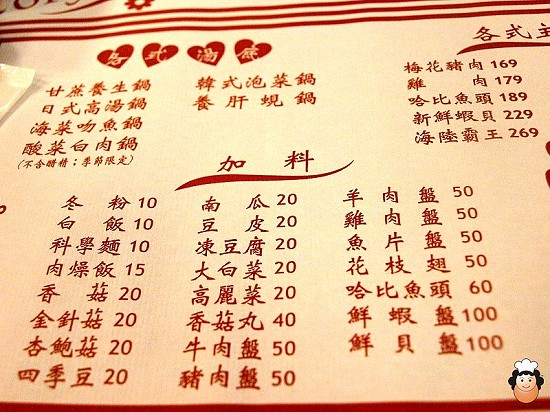 各式湯底
甘蔗養生鍋
日式高湯鍋
海菜吻魚鍋
酸菜白肉鍋
(不含醋精；季節限定)
韓式泡菜鍋
養肝蜆鍋
各式主
梅花豬肉 169
雞肉 179
哈比魚頭 189
新鮮蝦貝 229
海陸霸王 269
加料
冬粉 10
白飯 10
科學麵 10
肉燥飯 15
香菇 20
金針菇 20
杏鮑菇 20
四季豆 20
南瓜 20
豆皮 20
凍豆腐 20
大白菜 20
高麗菜 20
香菇丸 40
牛肉盤 50
豬肉盤 50
羊肉盤 50
雞肉盤 50
魚片盤 50
花枝翅 50
哈比魚頭 60
鮮蝦盤 100
鮮貝盤 100